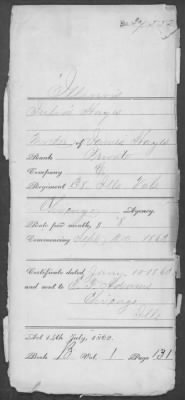 Illinois
Hayes
of James Hayes
Rank Private
Company G
Regiment 58 Ills Vols
Chicago Agency.
Rate per month, $ 8
Commencing Sept, 1862
Certificate dated Jany 10 186
and sent to
Chicago
Ills
Act 14th July, 1862.
Book B Vol. 1 Page 131